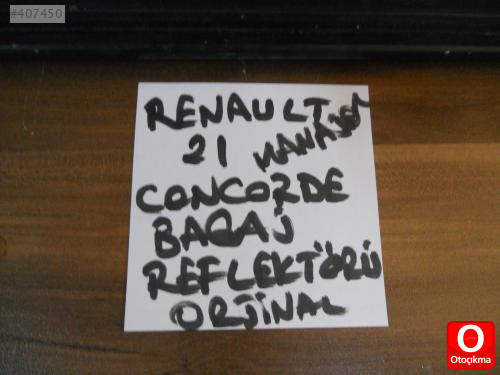 #407450
RENAULT
21 MANAGER
CONCORDE
BAGAJ
REFLEKTÖRÜ
ORJİNAL
O
Otoçıkma